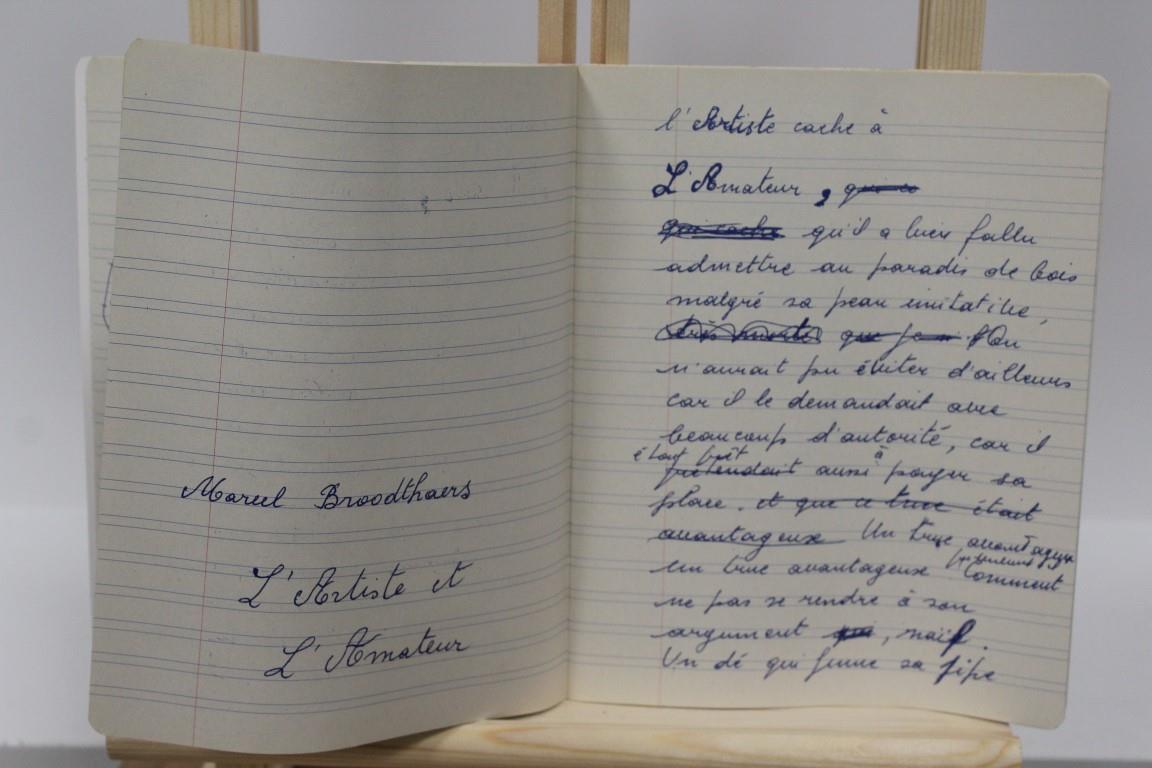 Marcel Broodthaers
L'Artiste et
L'Amateur
l'Artiste cache à
L'Amateur, qui ce
qui cache qu'il a bien fallu
admettre au paradis de bois
malgré sa peau imitative,
que On
n'aurait pu éviter d'ailleurs
car il le demandait avec
beaucoup d'autorité, car il
était prêt à
prétendait aussi payer sa
place. et que ce truc était
avantageux Un truc avantageux
un truc avantageux Comment
ne pas se rendre à son
argument qui, naïf.
Un dé qui fume sa pipe